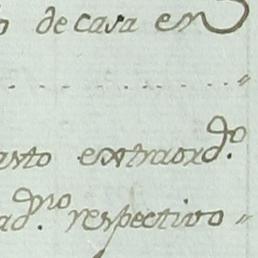 de casa en
extraord.º
ad.mo respectivo